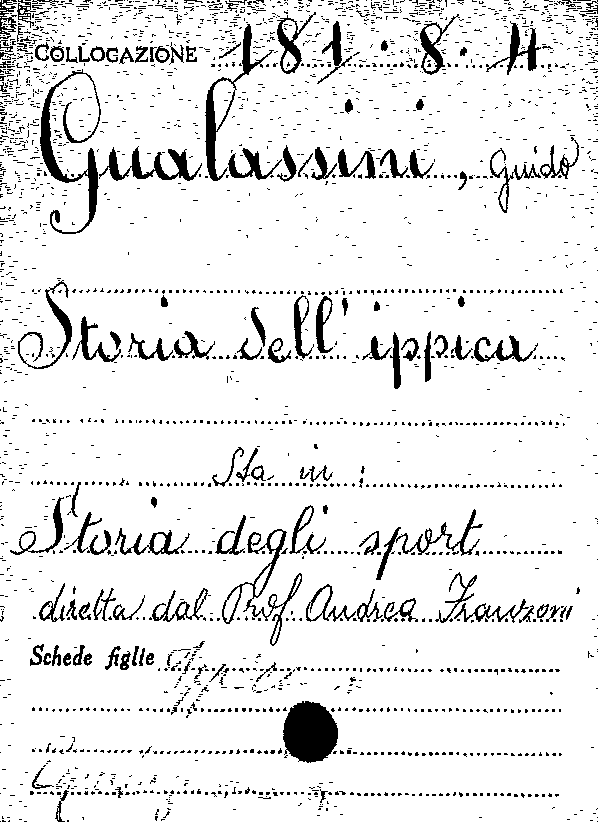 COLLOCAZIONE 181.8.4
Gualassini, Guido
Storia dell'ippica
Sta in:
Storia degli sport
diretta dal Prof. Andrea Franzoni
Schede figlie Ippica